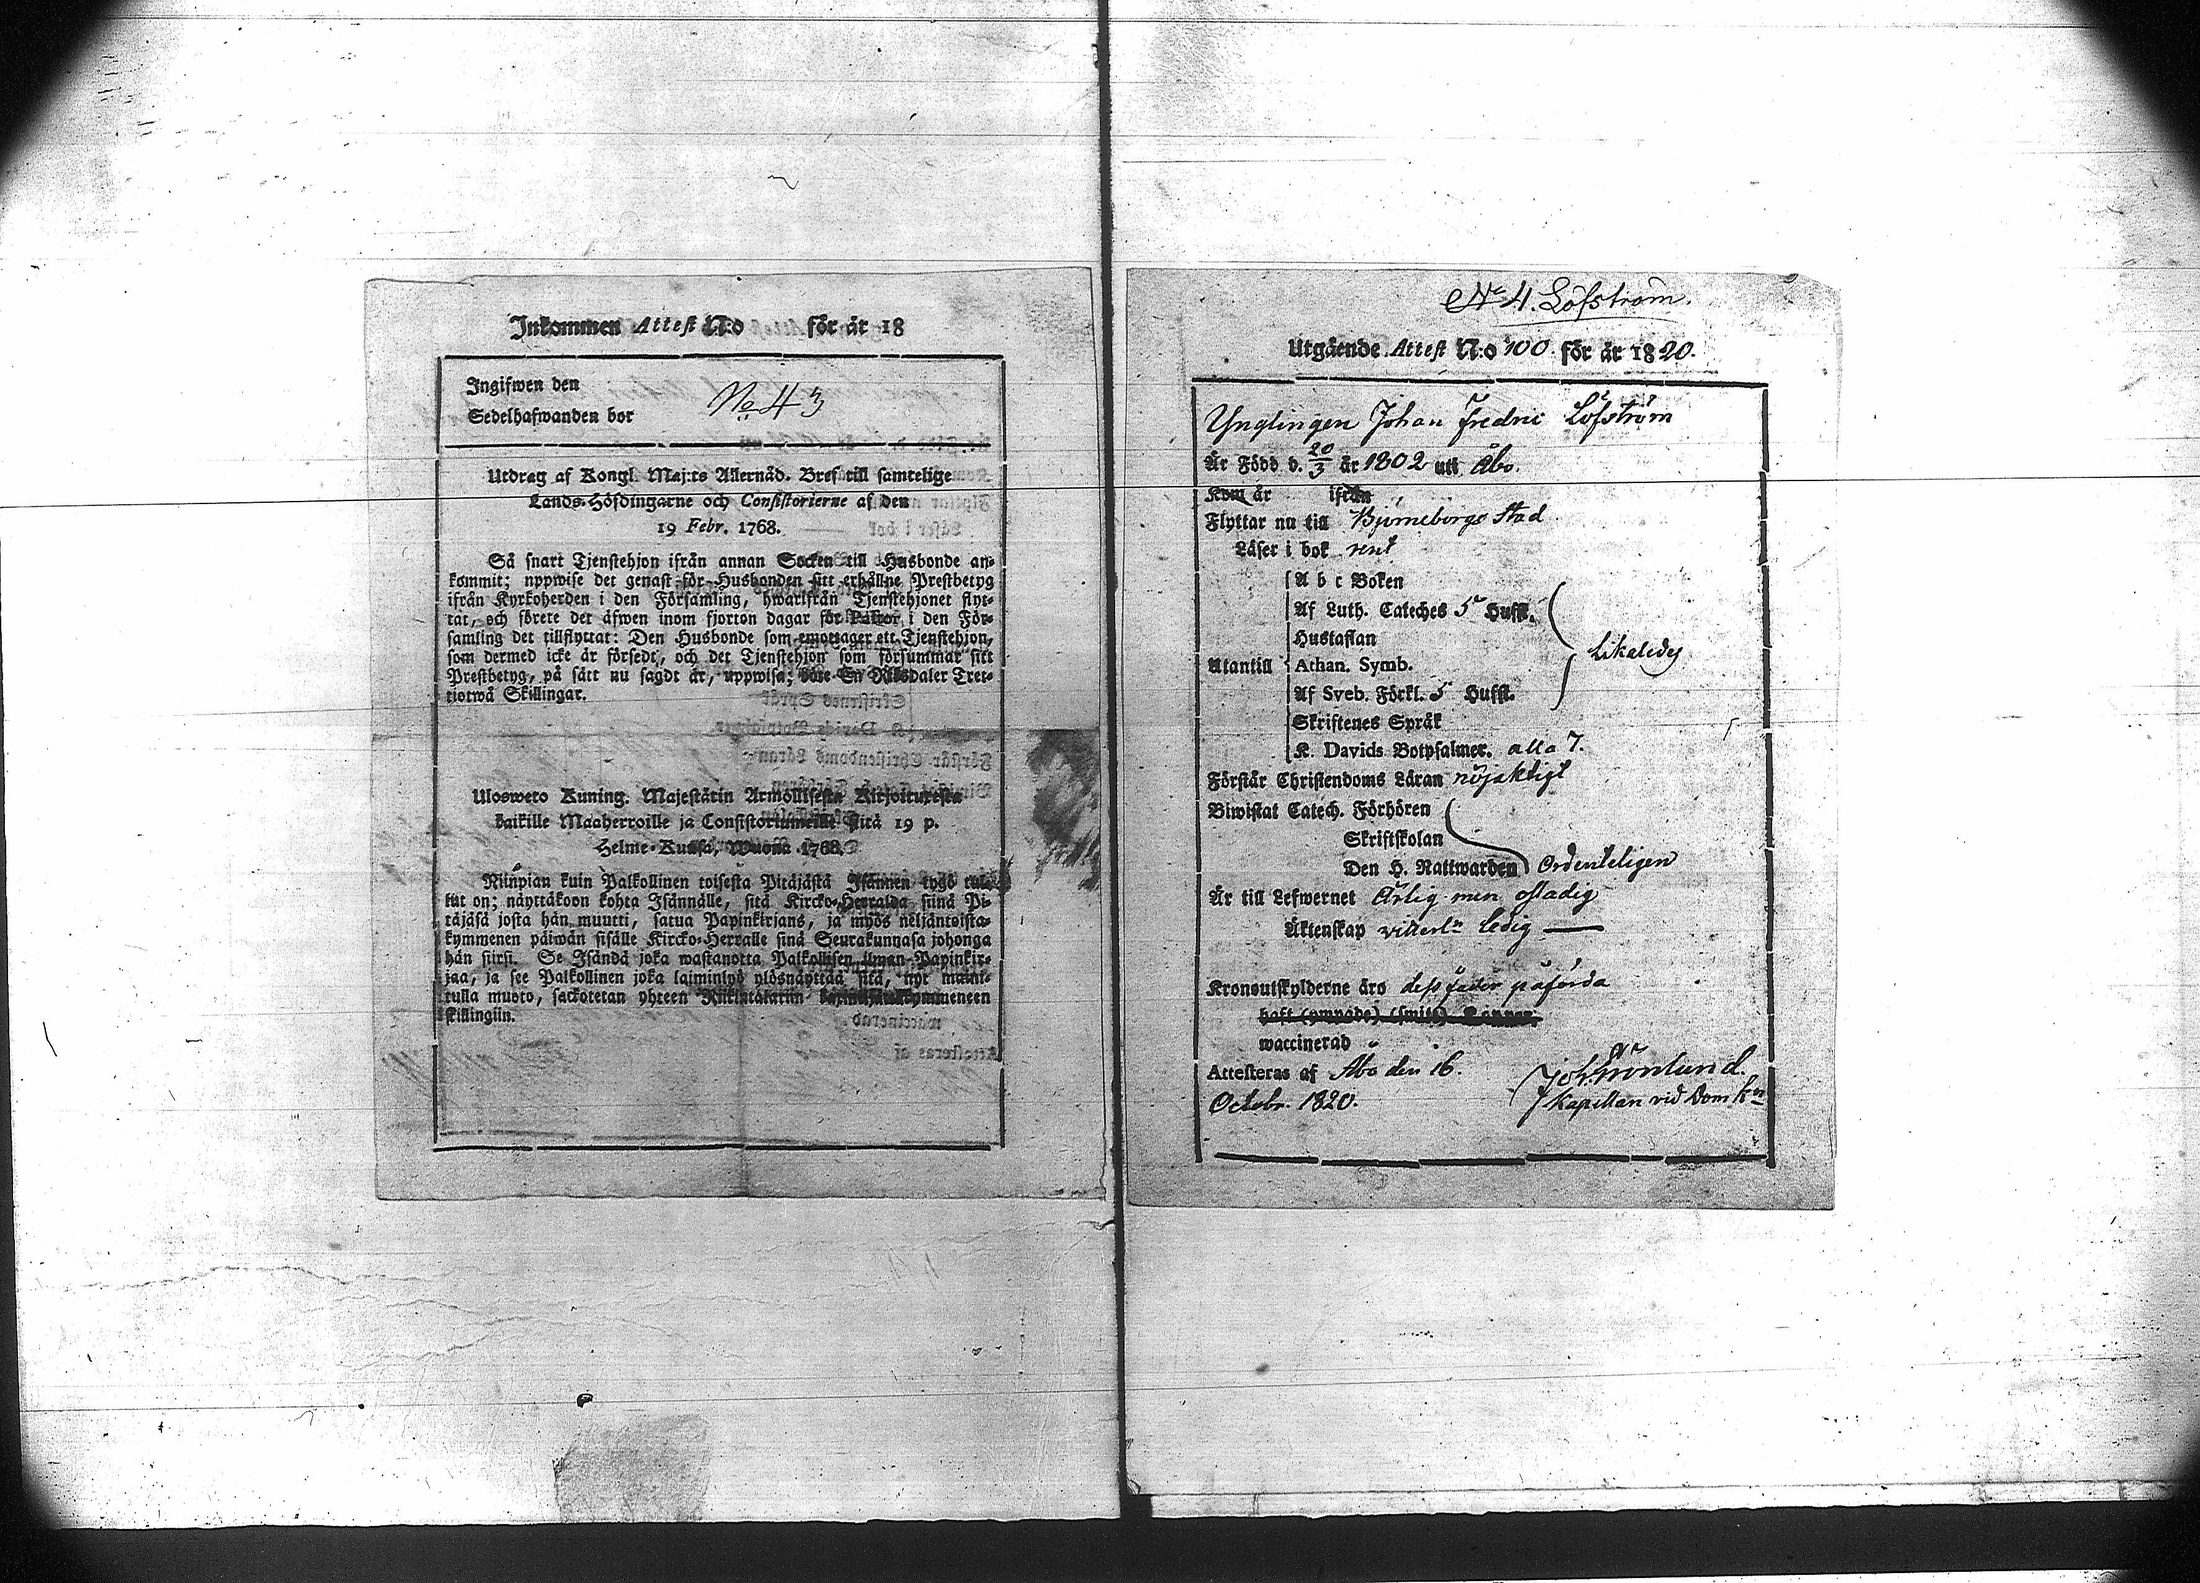 Inkommen Attest N:o för år 18
Ingifwen den
Sedelhafwanden bor
No 43
Utdrag af Kongl. Maj:ts Allernåd. Bref till samtelige
Lands-Höfdingarne och Consistorierne af den
19 Febr. 1768.
Så snart Tjenstehjon ifrån annan Socken till Husbonde an-
kommit; uppwise det genast för Husbonden sitt erhållne Prestbetyg
ifrån Kyrkoherden i den Församling, hwarifrån Tjenstehjonet flyt-
tat, och förete det äfwen inom fjorton dagar för Pastor i den För-
samling det tillflyttat: Den Husbonde som emottager ett Tjenstehjon,
som dermed icke är försedt, och det Tjenstehjon som försummar sitt
Prestbetyg, på sätt nu sagdt är, uppwisa; böte En Riksdaler Tret-
tiotwå Skillingar.
Ulosweto Kuning. Majestätin Armollisesta Kirjoituresta
kaikille Maaherroille ja Consistoriumeille sitä 19 p.
Helme-Kuusa, Wuona 1768.
Niinpian kuin Palkollinen toisesta Pitäjästä Isännen tygö tul-
lut on; näyttäkoon kohta Isännälle, sitä Kircko-Herralda siinä Pi-
täjäsä josta hän muutti, satua Papinkirjans, ja myös neljäntoista-
kymmenen päiwän sisälle Kircko-Herralle sinä Seurakunnasa johonga
hän siirsi. Se Isändä joka wastanotta Palkollisen ilman Papinkir-
jaa, ja see Palkollinen joka laiminlyö ylösnäyttää sitä, nyt maini-
tulla muoto, sackotetan yhteen Riikintalariin kymmeneen
skillingiin.
No 4. Löfström.
Utgående Attest N:o 100. för år 1820.
Ynglingen Johan Fredric Löfström
Är Född d. 20/3 år 1802 uti Åbo.
Kom år ifrån
Flyttar nu till Björneborgs Stad
Läser i bok rent
A b c Boken
Af Luth. Cateches 5 Hufst.
Hustaflan
Utantill Athan. Symb.
Likaledes
Af Sveb. Förkl. 5 Hufst.
Skriftenes Språk
K. Davids Botpsalmer. alla 7.
Förstår Christendoms Läran nöjaktigt
Biwistat Catech. Förhören
Skriftskolan
Den H. Nattwarden Ordenteligen
Är till Lefwernet Ärlig men ostadig
Äktenskap vitterl:n Ledig
Kronoutskylderne äro dess fader påförda
haft (ympade) (smitt) Koppor.
waccinerad
Attesteras af Åbo den 16.
Octobr. 1820.
Joh. Grönlund.
Kapellan vid Dom k:n